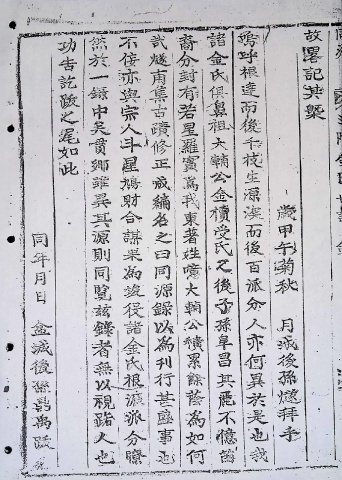 故畧記其槩
歲甲午菊秋 月城後孫燧拜手
嗚呼根達而後千枝生源深而後百派分人亦何異於是也哉
諸金氏俱鼻祖大輔公金櫝受氏之後子孫阜昌其麗不憶
裔分封有若星羅實爲我東著姓噫大輔公積累餘蔭爲如何
哉燧甫集古蹟修正成編名之曰同源錄以爲刊行甚盛事也
不侫亦與宗人斗星鳩財合謀采爲竣役諸金氏根源派分瞭
然於一錄中矣貫鄕雖異其源則同覽玆錄者無以視路人也
功告訖跋之尾如此
同年月日 金城後孫 禹跋